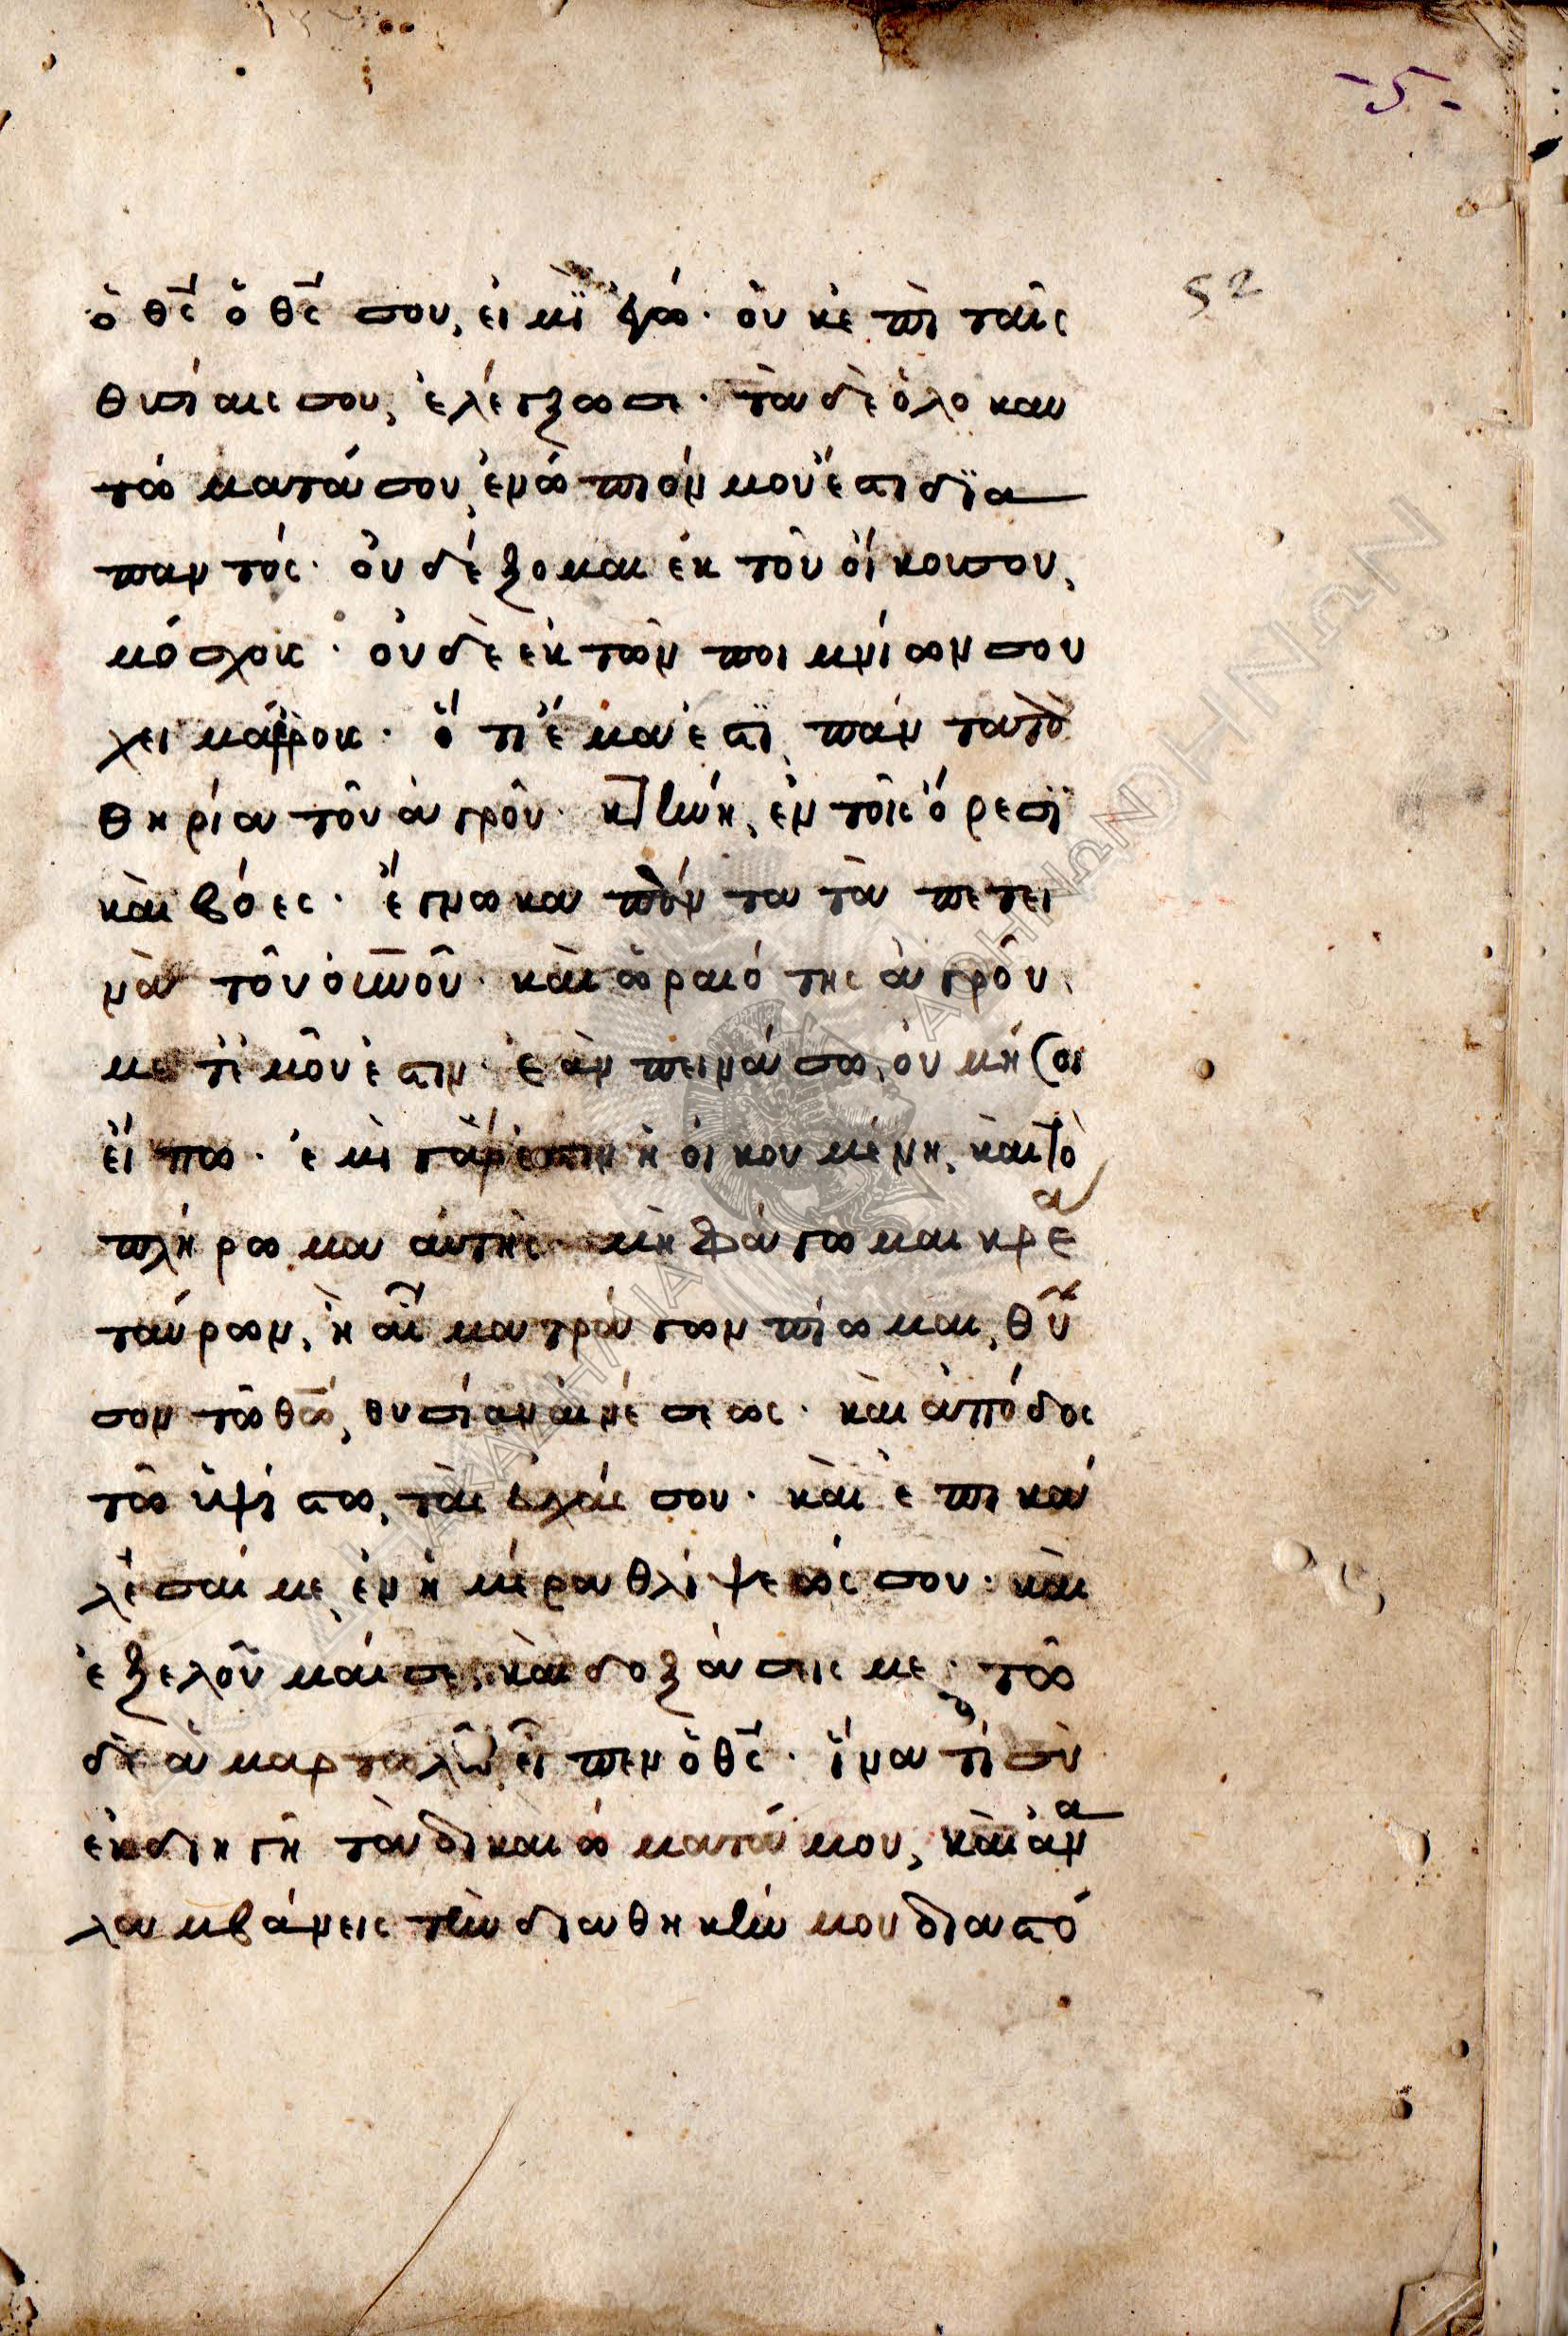 -5-
52
ὁ θς ὁ θς σου, εἰμϊ ἐγώ· οὐκ ἐπὶ ταῖς
θυσίαις σου, ἐλέγξω σε· τὰ δὲ ὁλοκαυ
τώματά σου, ἐνώπιόν μου ἐστι δϊα
παντός· οὐ δέξομαι ἐκ τοῦ οἴκου σου,
μόσχους· οὐδὲ ἐκ τῶν ποιμνίων σου
χειμάρρους· ὅτι ἐμά ἐστϊ, πάντα τὰ
θηρία τοῦ ἀγροῦ· κτήνη, ἐν τοῖς ὄρεσϊ
καὶ βόες· ἔγνωκα πάντα τὰ πετει
νὰ τοῦ οὐνοῦ· καὶ ὡραιότης ἀγροῦ,
μετ' ἐμοῦ ἐστιν· ἐὰν πεινάσω, οὐ μή σοι
εἴπω· ἐμὴ γάρ ἐστιν ἡ οἰκουμένη, καὶ τὸ
πλήρωμα αὐτῆς· μὴ φάγωμαι κρέα
ταύρων, ἢ αἷμα τράγων πίωμαι, θῦ
σον τῶ θω, θυσίαν αἰνέσεως· καὶ ἀπόδος
τῶ ὑψίστω, τὰς εὐχάς σου· καὶ ἐπικά
λεσαί με, ἐν ἡμέρα θλίψεώς σου· καὶ
ἐξελοῦμαί σε, καὶ δοξάσεις με· τῶ
δὲ ἁμαρτωλῶ εἶπεν ὁ θς· ἵνα τί σὺ
ἐκδιηγῆ τὰ δικαιώματά μου, καὶ ἀνα
λαμβάνεις τὴν διαθήκην μου διὰ στό
ΑΚΑΔΗΜΙΑ ΑΘΗΝΩΝ